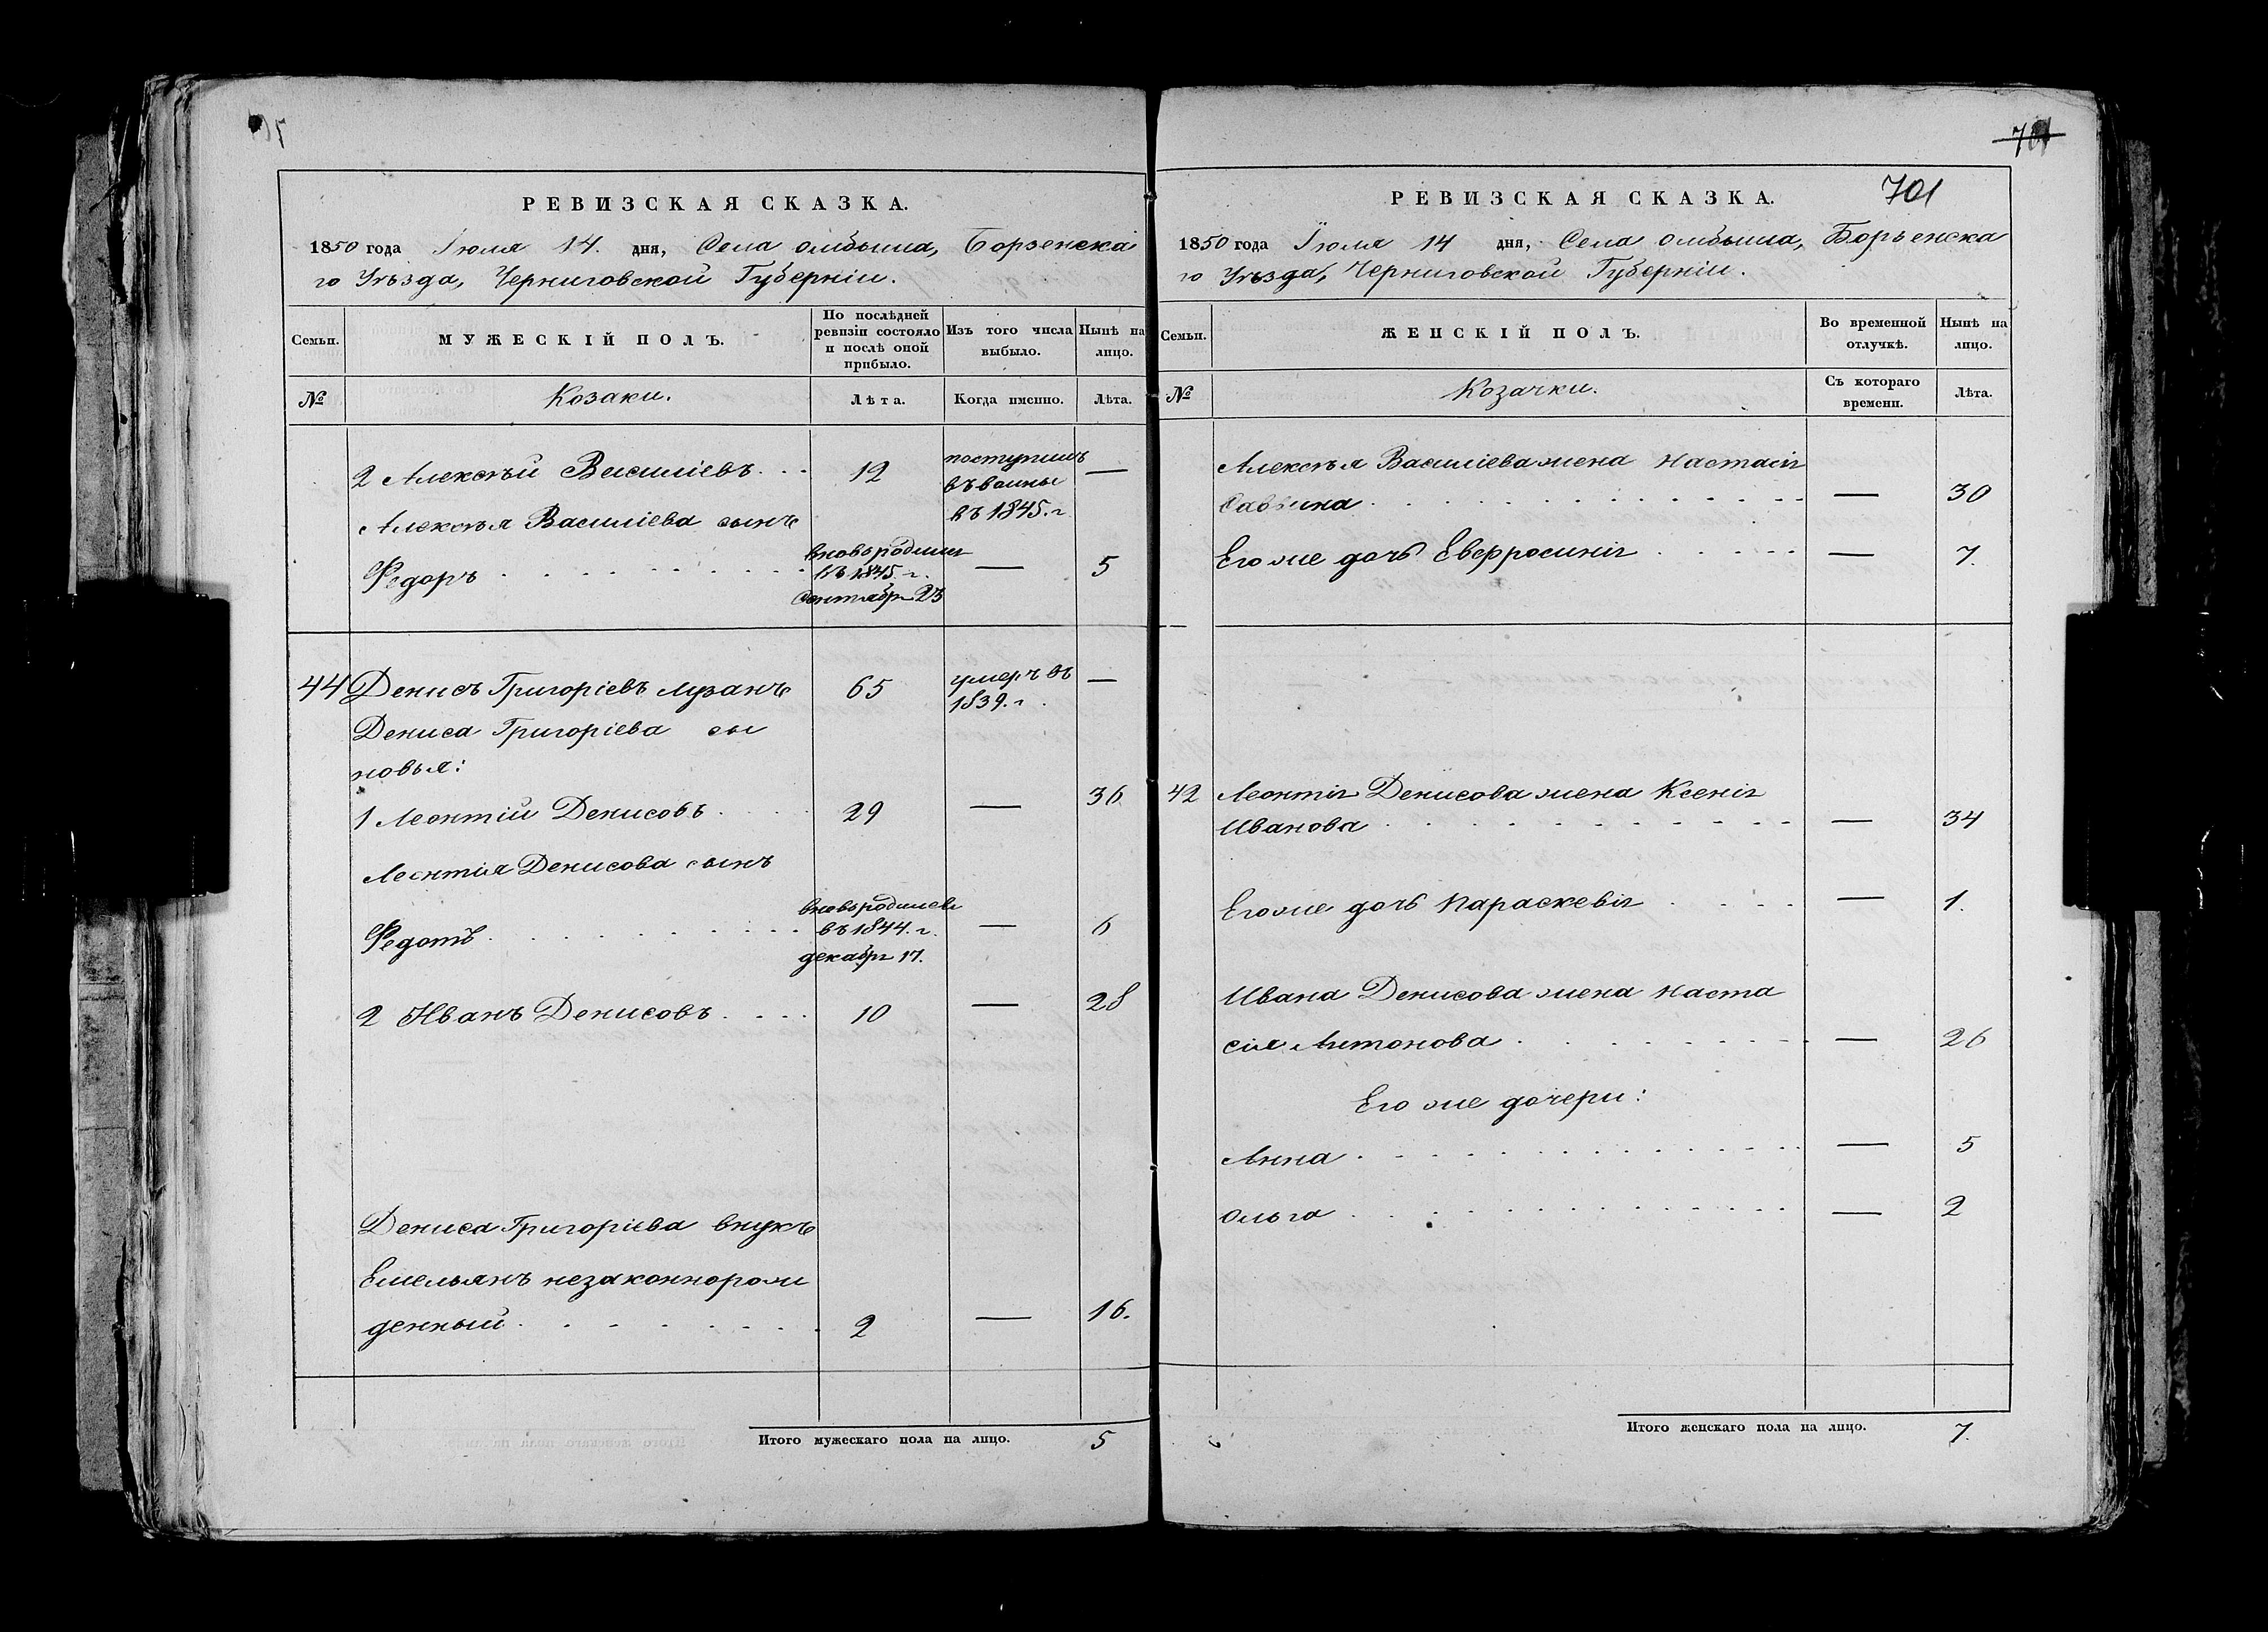 РЕВИЗСКАЯ СКАЗКА.
1850 года Іюля 14. дня, Села Омбыша, Борзенска
го Уѣзда, Черниговской Губерніи.
Семьи.
МУЖЕСКІЙ ПОЛЪ.
По послѣдней
ревизіи состояло
и послѣ оной
прибыло.
Изъ того числа
выбыло.
Нынѣ на
лицо.
№
Козаки.
Лѣта.
Когда именно.
Лѣта.
2 Алексѣй Василіевъ. . . 12 поступилъ —
въ
въ 1845. г
Алексѣя Василіева сынъ
Федоръ . . . . . . . . . . вновь родился
въ 1845. г.
Сентября 23 — 5
44 Денисъ Григоріевъ Лузанъ 65 умеръ въ —
1839. г.
Дениса Григоріева сы
новья:
1 Леонтій Денисовъ . . . . 29 — 36
Леонтія Денисова сынъ
Федотъ . . . . . . . . . . вновь родился
въ 1844. г.
декабря 17. — 6
2 Иванъ Денисовъ . . . . 10 — 28
Дениса Григоріева внукъ
Емельянъ незаконнорож
денный . . . . . . . . 2 — 16.
Итого мужескаго пола на лицо. 5
701
701
РЕВИЗСКАЯ СКАЗКА.
1850 года Іюля 14 дня, Села Омбыша, Борзенска
го Уѣзда, Черниговской Губерніи.
Семьи.
ЖЕНСКІЙ ПОЛЪ.
Во временной
отлучкѣ.
Нынѣ на
лицо.
№
Козачки.
Съ котораго
времени.
Лѣта.
Алексѣя Василіева жена Настасія
Саввина . . . . . . . . . . . . . . — 30
Его же дочь Евфросинія . . . . . — 7.
42 Леонтія Денисова жена Ксенія
Иванова . . . . . . . . . . . . — 34
Его же дочь Параскевія . . . . — 1.
Ивана Денисова жена Наста
сія Антонова . . . . . . . . . — 26
Его же дочери:
Анна . . . . . . . . . . . . . . — 5
Ольга . . . . . . . . . . . . . — 2
Итого женскаго пола на лицо. 7.